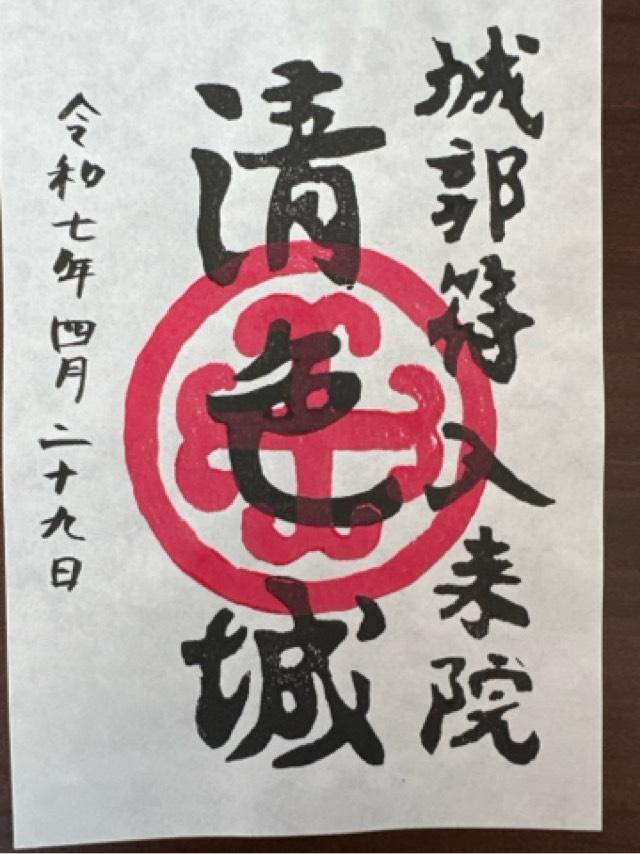 城郭符 入来院
清色城
令和七年 四月 二十九日